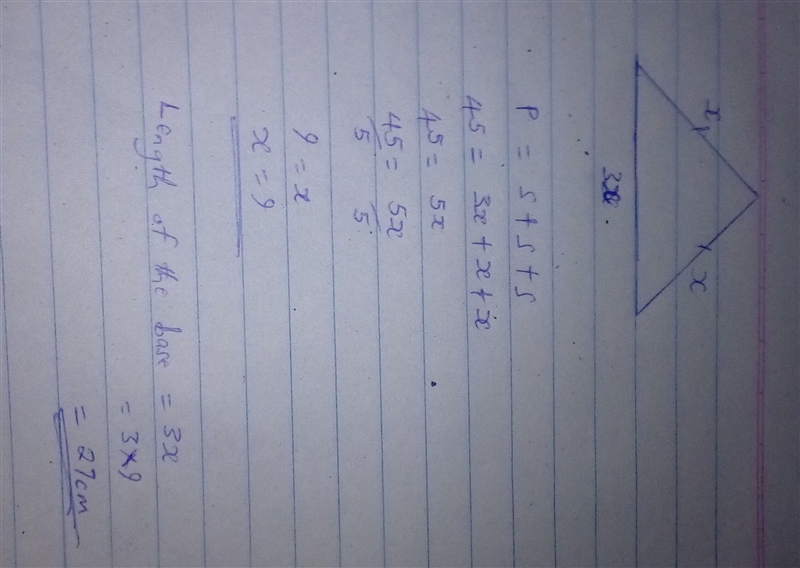 x x
3x
P = S + S + S
45 = 3x + x + x
45 = 5x
45 = 5x
5 5
9 = x
x = 9
Length of the base = 3x
= 3 x 9
= 27cm